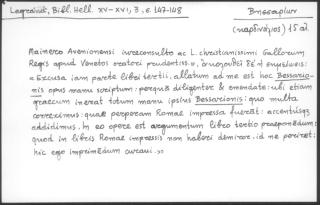 Legrand, Bibl. Hell. XV-XVI, 3, σ. 147-148
Βησσαρίων
(καρδινάλιος) 15 αἰ.
Mainero Avenionensi iureconsulto ac L. christianissimi Gallorum
Regis apud Venetos oratori prudentiss.», ἀκολουθεῖ δὲ ἡ σημείωσις:
«Excusa iam parte libri tertii, allatum ad me est hoc Bessario-
nis opus manu scriptum: perquam diligenter & emendate: ubi etiam
graecum inerat totum manu ipsius Bessarionis: quo multa
correximus: quae perperam Romae impressa fuerant: accentusq;
addidimus. In eo opere est argumentum libro tertio praeponendum:
quod in libris Romae impressis non haberi demiror. id ne periret:
hic ego imprimendum curavi.»